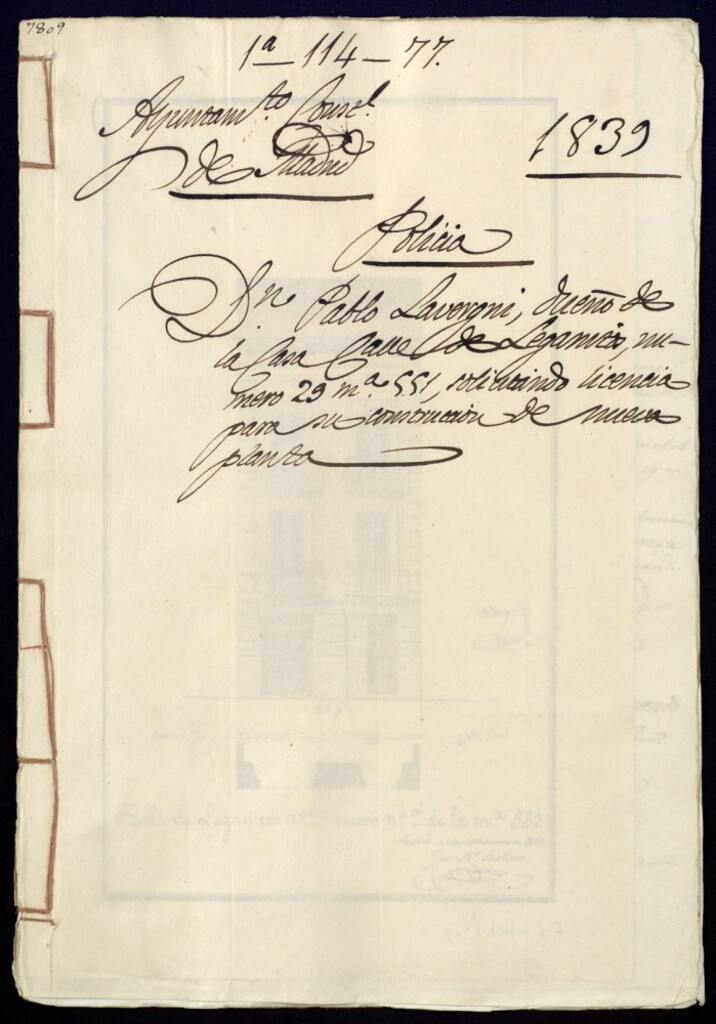 7809
1ª-114-77.
Ayuntam.to Const.l
de Madrid
1839
Policia
D.n Pablo Lavergni, dueño de
la Casa Calle de Leganitos, nu-
mero 29 m.ª 551, solicitando licencia
para su construccion de nueva
planta